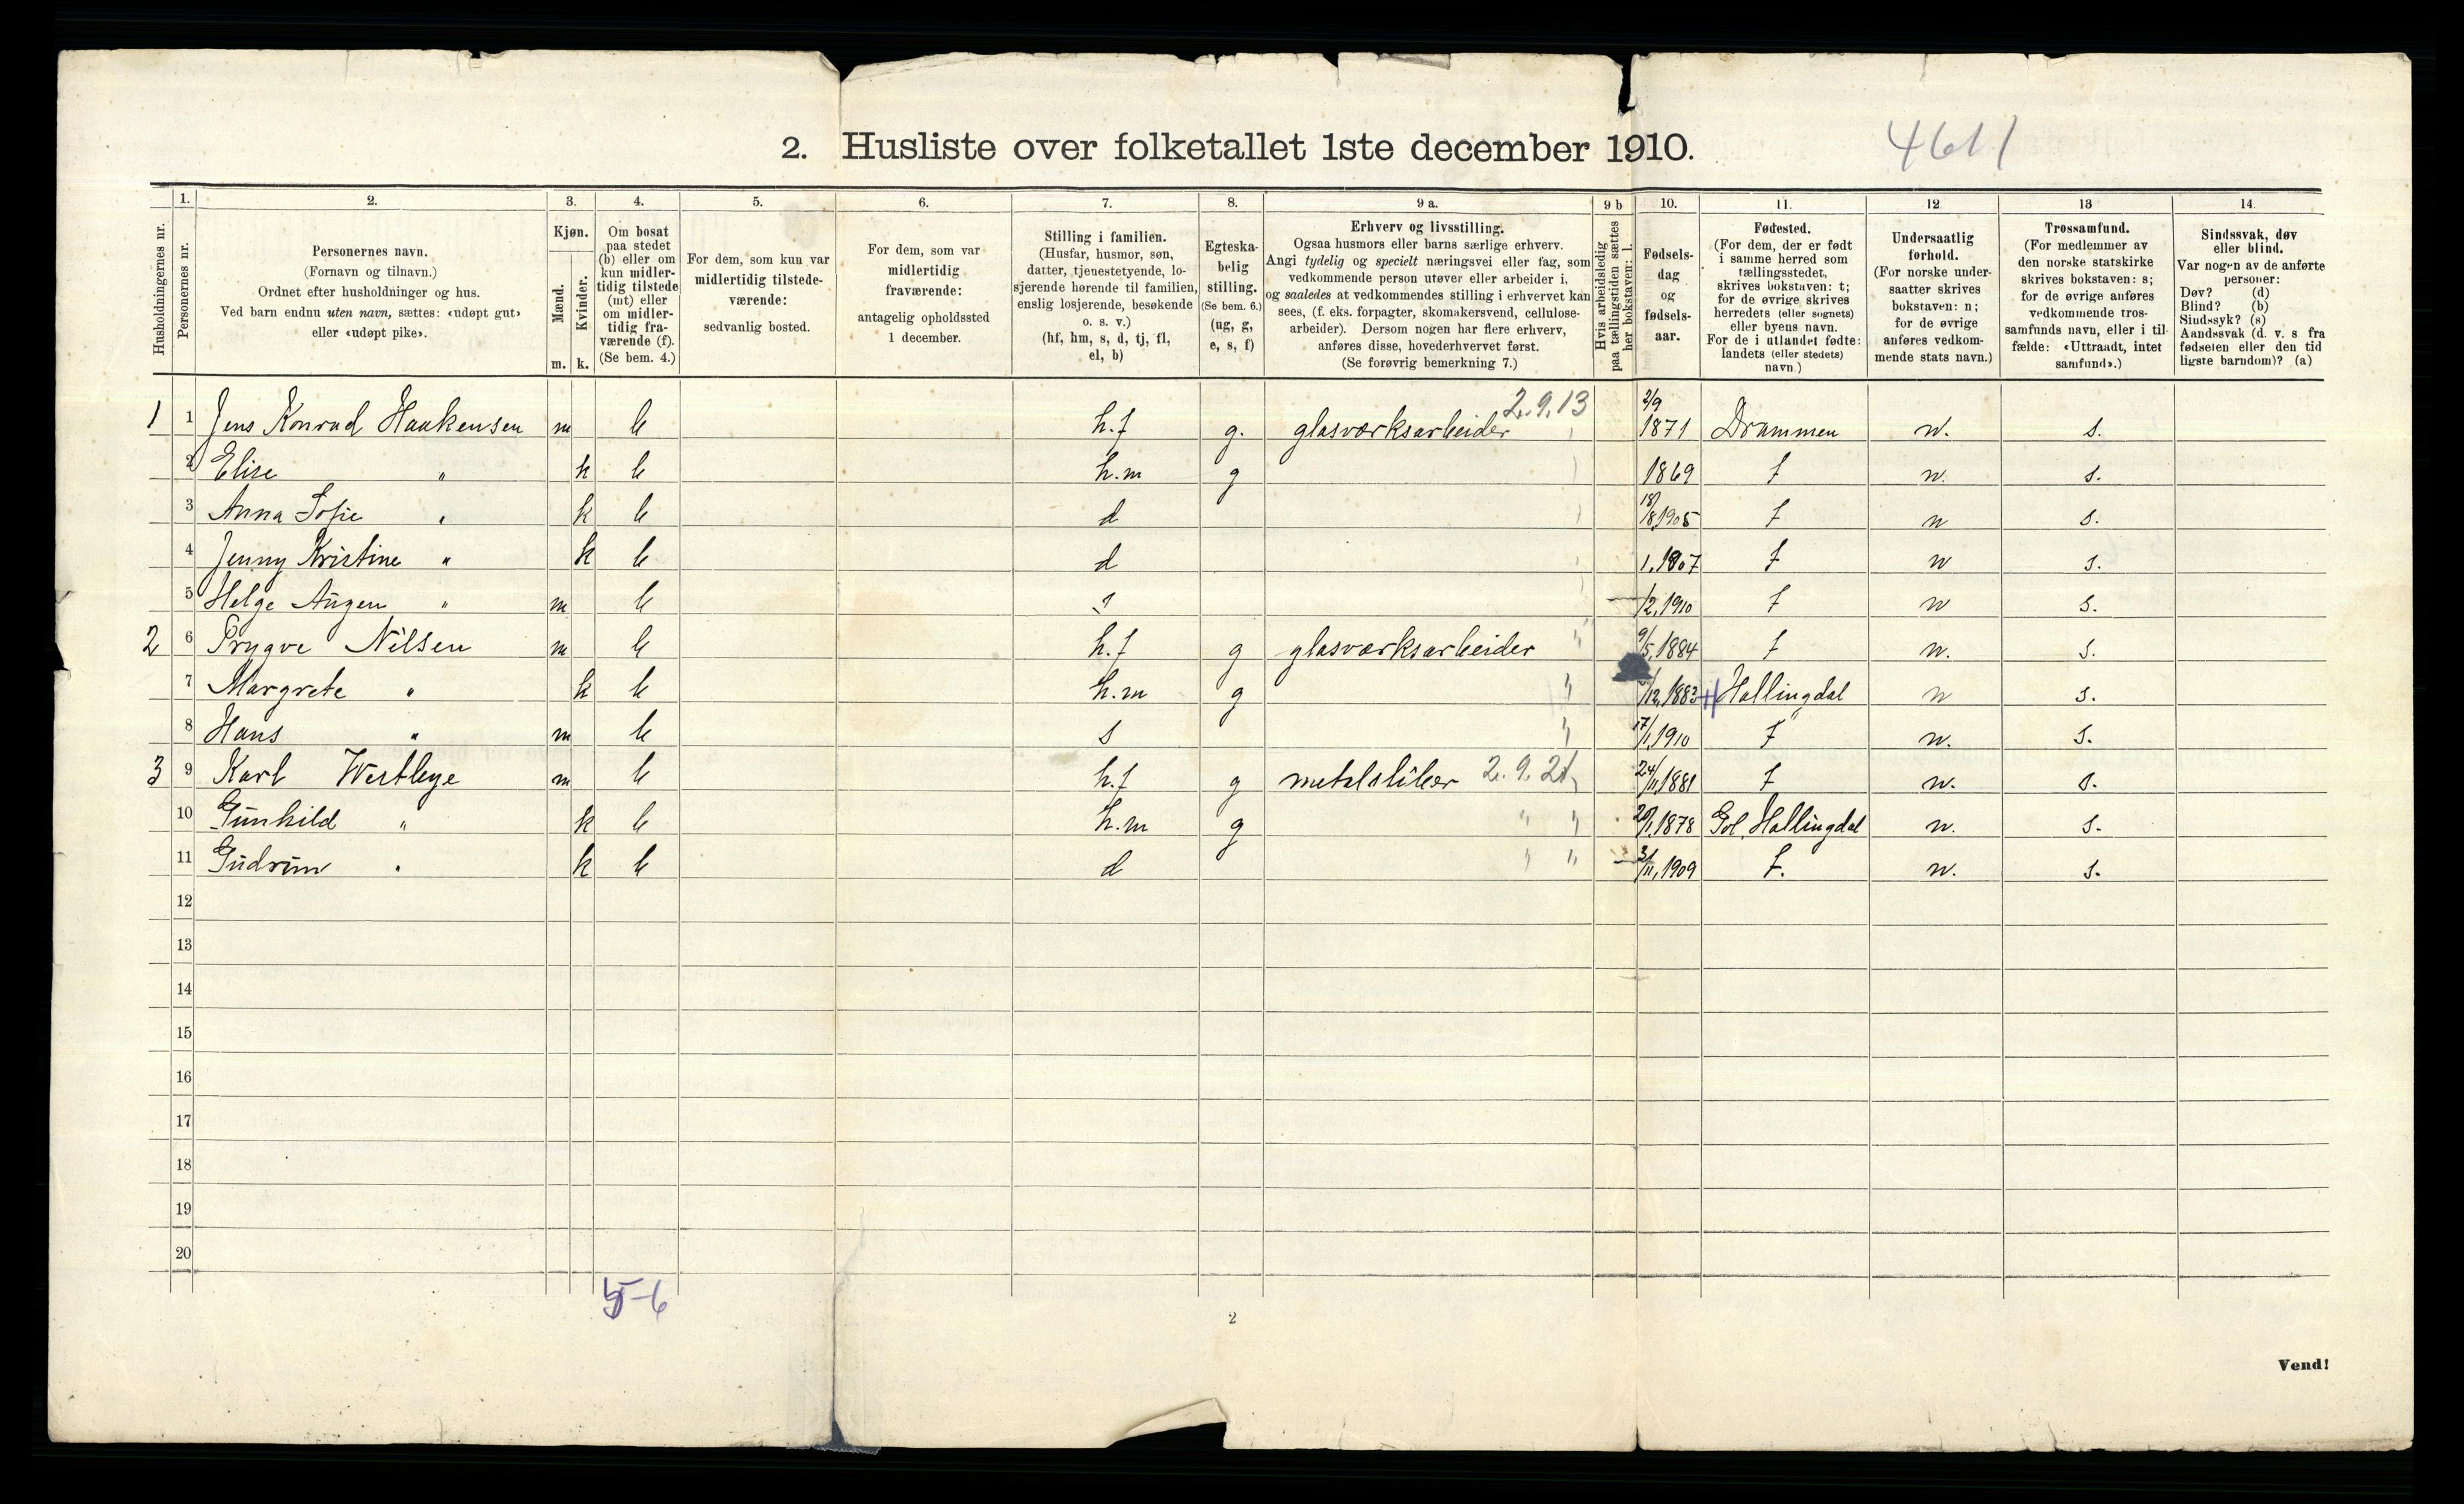 2. Husliste over folketallet 1ste december 1910.
4611
Husholdningernes nr.
1. Personernes nr.
2. Personernes navn. (Fornavn og tilnavn.) Ordnet efter husholdninger og hus. Ved barn endnu uten navn, sættes: «udøpt gut» eller «udøpt pike».
3. Kjøn. Mænd. m. Kvinder. k.
4. Om bosat paa stedet (b) eller om kun midlertidig tilstede (mt) eller om midlertidig fraværende (f). (Se bem. 4.)
5. For dem, som kun var midlertidig tilstedeværende: sedvanlig bosted.
6. For dem, som var midlertidig fraværende: antagelig opholdssted 1 december.
7. Stilling i familien. (Husfar, husmor, søn, datter, tjenestetyende, losjerende hørende til familien, enslig losjerende, besøkende o. s. v.) (hf, hm, s, d, tj, fl, el, b)
8. Egteskabelig stilling. (Se bem. 6.) (ug, g, e, s, f)
9 a. Erhverv og livsstilling. Ogsaa husmors eller barns særlige erhverv. Angi tydelig og specielt næringsvei eller fag, som vedkommende person utøver eller arbeider i, og saaledes at vedkommendes stilling i erhvervet kan sees, (f. eks. forpagter, skomakersvend, cellulosearbeider). Dersom nogen har flere erhverv, anføres disse, hovederhvervet først. (Se forøvrig bemerkning 7.)
9 b Hvis arbeidsledig paa tællingstiden sættes her bokstaven: l.
10. Fødselsdag og fødselsaar.
11. Fødested. (For dem, der er født i samme herred som tællingsstedet, skrives bokstaven: t; for de øvrige skrives herredets (eller sognets) eller byens navn. For de i utlandet fødte: landets (eller stedets) navn.)
12. Undersaatlig forhold. (For norske undersaatter skrives bokstaven: n; for de øvrige anføres vedkommende stats navn.)
13 Trossamfund. (For medlemmer av den norske statskirke skrives bokstaven: s; for de øvrige anføres vedkommende trossamfunds navn, eller i tilfælde: «Uttraadt, intet samfund».)
14. Sindssvak, døv eller blind. Var nogen av de anførte personer: Døv? (d) Blind? (b) Sindssyk? (s) Aandssvak (d. v. s fra fødselen eller den tidligste barndom)? (a)
1 1 Jens Konrad Haakensen m b h.f g. glasværksarbeider 2.9.13 2/9 1871 Drammen n. s.
2 Elise " k b h.m g 1869 t n. s.
3 Anna Sofie " k b d 18/8 1905 t n s.
4 Jenny Kristine " k b d 1907 t n s.
5 Helge Augen " m b s 1910 t n s.
2 6 Trygve Nilsen m b h.f g glasværksarbeider " 9/5, 1884 t n. s.
7 Margrete " k b h.m g " /12, 1883 Hallingdal n s.
8 Hans " m b s " 17/1, 1910 t n. s.
3 9 Karl Westbye m b h.f g metalsliber 2.9.21 24/11, 1881 t n. s.
10 Gunhild " k b h.m g " " 20/1, 1878 Gol, Hallingdal n. s.
11 Gudrun " k b d " " /11, 1909 t. n. s.
12
13
14
15
16
17
18
19
20
5-6
2
Vend!